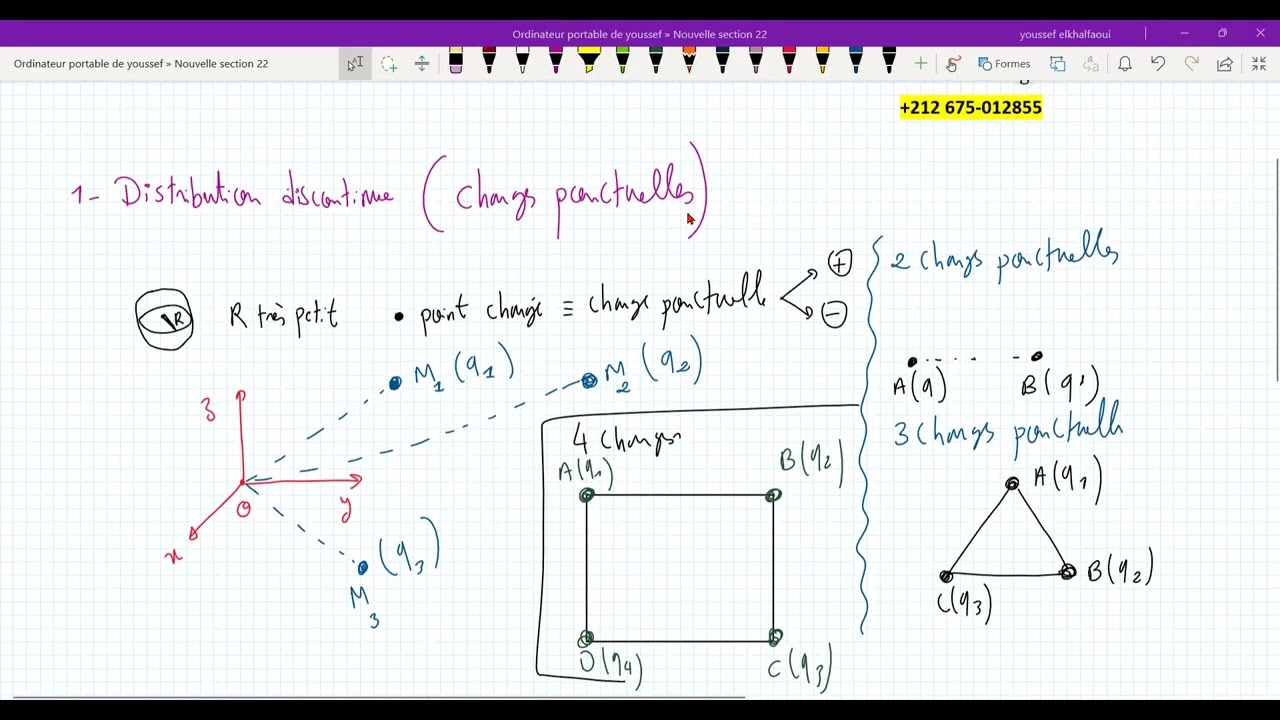 Ordinateur portable de youssef » Nouvelle section 22
youssef elkhalfaoui
Ordinateur portable de youssef » Nouvelle section 22
Formes
+212 675-012855
1- Distribution discontinue (charges ponctuelles)
R
R très petit • point chargé ≡ charge ponctuelle
+
-
M1 (q1)
M2 (q2)
z
O
y
x
(q3)
M3
4 charges
A(q1)
B(q2)
D(q4)
C(q3)
2 charges ponctuelles
A(q)
B(q')
3 charges ponctuelle
A(q1)
B(q2)
C(q3)